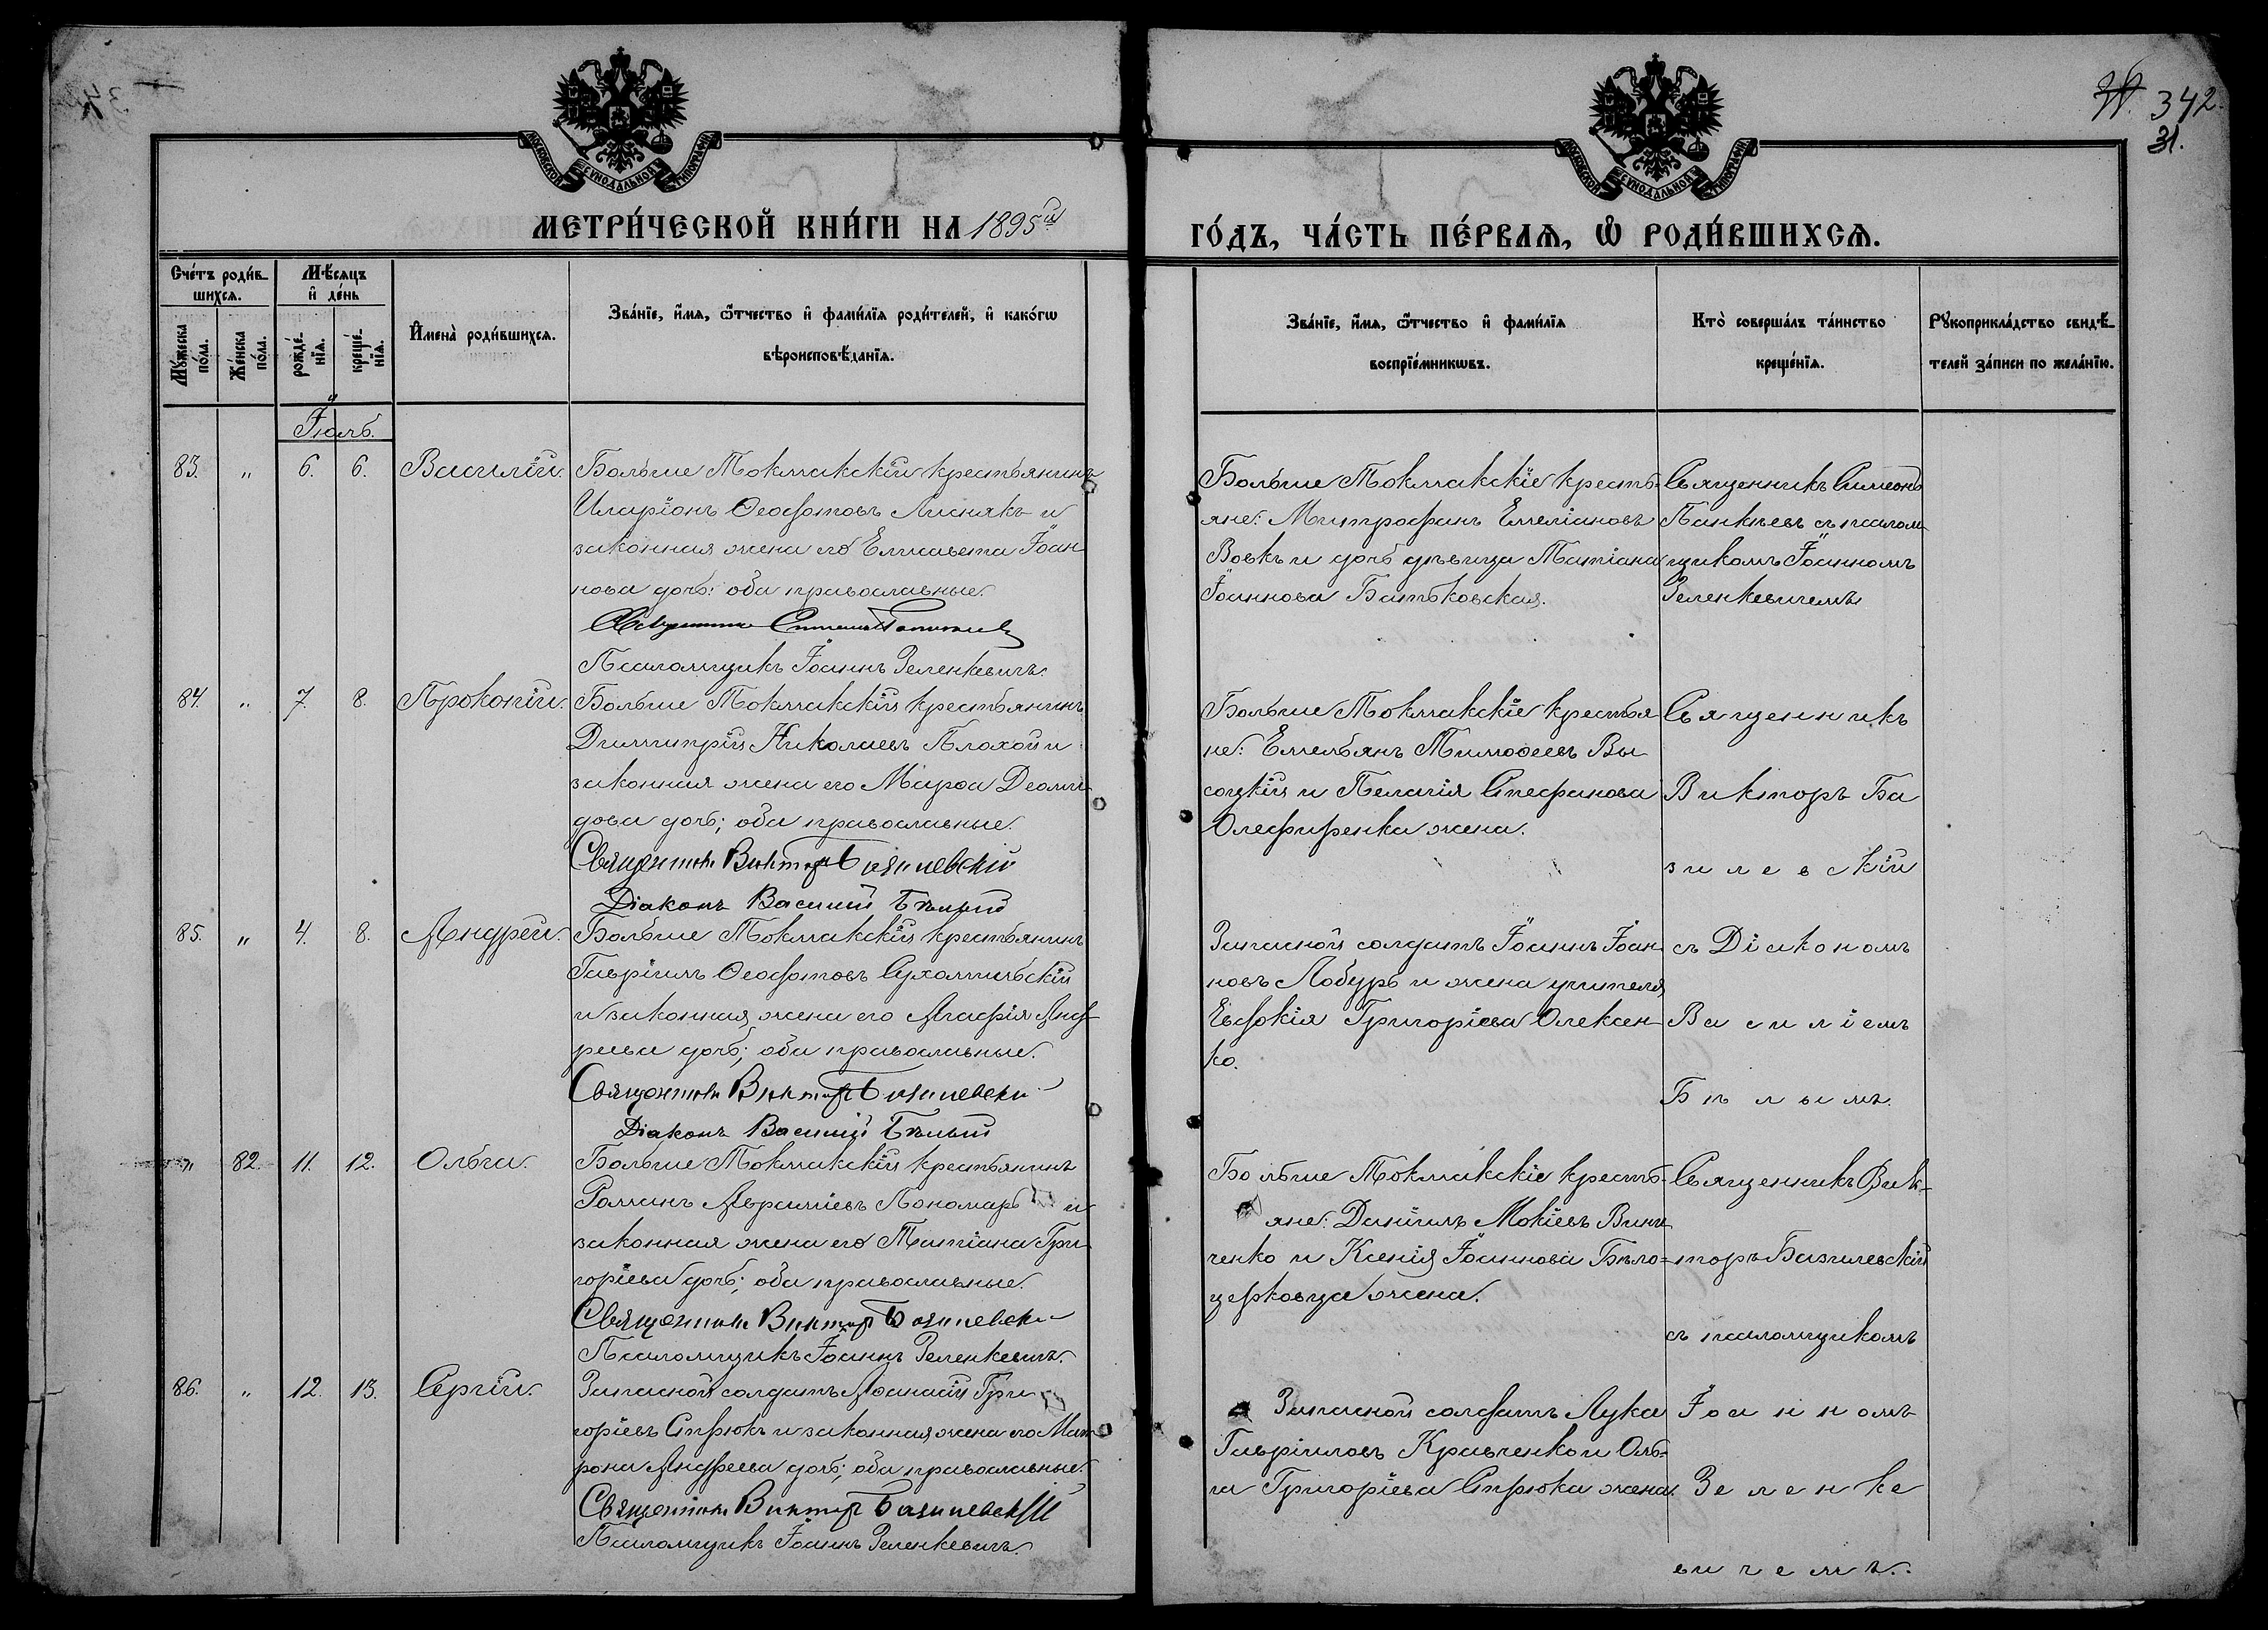 342.
31.
МОСКОВСКОЙ СѴНОДАЛЬНОЙ ТИПОГРАФІИ
МОСКОВСКОЙ СѴНОДАЛЬНОЙ ТИПОГРАФІИ
МЕТРИ́ЧЕСКОЙ КНИ́ГИ НА 1895й
ГО́ДЪ, ЧА́СТЬ ПЕ́РВАѦ, Ѡ РОДИ́ВШИХСѦ.
Сче́тъ роди́в-
шихсѧ.
Мꙋ́жеска по́ла.
Же́нска по́ла.
Мѣ́сѧцъ
и҆ де́нь
рожде́-
нїѧ.
креще́-
нїѧ.
И҆мена̀ роди́вшихсѧ.
Зва́нїе, и҆́мѧ, ѻ҆́тчество и҆ фами́лїѧ роди́телей, и҆ како́гѡ
вѣроисповѣ́данїѧ.
Зва́нїе, и҆́мѧ, ѻ҆́тчество и҆ фами́лїѧ
воспрїе́мникѡвъ.
Кто̀ соверша́лъ та́инство
креще́нїѧ.
Рꙋкоприкла́дство свидѣ́-
телей за́писи по жела́нїю.
Іюль.
83. „ 6. 6. Василій. Больше Токмакскій крестьянинъ
Иларіонъ Ѳеофотовъ Лиснякъ и
законная жена его Елисавета Іоан
нова дочь: оба православные.
Псаломщикъ Іоаннъ Зеленкевичъ.
Больше Токмакскіе кресть-
яне: Митрофанъ Емеліановъ
Вовкъ и дочь дѣвица Татіана
Іоаннова Батьковская.
Священникъ Симеонъ
Панкѣевъ съ псалом-
щикомъ Іоанномъ
Зеленкевичемъ
84. „ 7. 8. Прокопій. Больше Токмакскій крестьянинъ
Димитрій Николаевъ Плохой и
законная жена его Марѳа Деоми
дова дочь; оба православные.
Священникъ Викторъ Базилевскій
Діаконъ Василій Бѣлый
Больше Токмакскіе крестья
не: Емельянъ Тимоѳеевъ Вы
соцкій и Пелагія Стефанова
Олефиренка жена.
Священникъ
Викторъ Ба
зилевскій
85. „ 4. 8. Андрей. Больше Токмакскій крестьянинъ
Гавріилъ Ѳеофотовъ Сухомильскій
и законная жена его Агафія Анд-
реева дочь; оба православные.
Священникъ Викторъ Базилевскій
Діаконъ Василій Бѣлый
Запасной солдатъ Іоаннъ Іоан-
новъ Лобуръ и жена учителя
Евдокія Григоріева Олексен-
ко.
съ Діакономъ
Василіемъ
Бѣлымъ.
„ 82. 11. 12. Ольга. Больше Токмакскій крестьянинъ
Романъ Авраміевъ Пономарь и
законная жена его Татіана Гри-
горіева дочь; оба православные.
Священникъ Викторъ Базилевскій
Псаломщикъ Іоаннъ Зеленкевичъ.
Больше Токмакскіе кресть-
яне: Даніилъ Мокіевъ Вини-
ченко и Ксенія Іоаннова Бѣло-
церковца жена.
Священникъ Вик-
торъ Базилевскій
съ псаломщикомъ
86. „ 12. 13. Сергій. Запасной солдатъ Аѳанасій Гри
горіевъ Стрюкъ и законная жена его Мат
рона Андреева дочь; оба православные.
Священникъ Викторъ Базилевскій
Псаломщикъ Іоаннъ Зеленкевичъ.
Запасной солдатъ Лука
Гавріиловъ Кравченко и Оль-
га Григоріева Стрюка жена.
Іоанномъ
Зеленке
вичемъ.